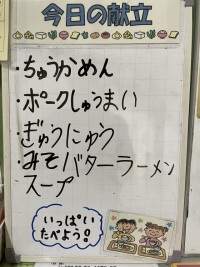 今日の献立
・ちゅうかめん
・ポークしゅうまい
・ぎゅうにゅう
・みそバターラーメン
スープ
いっぱい
たべよう!